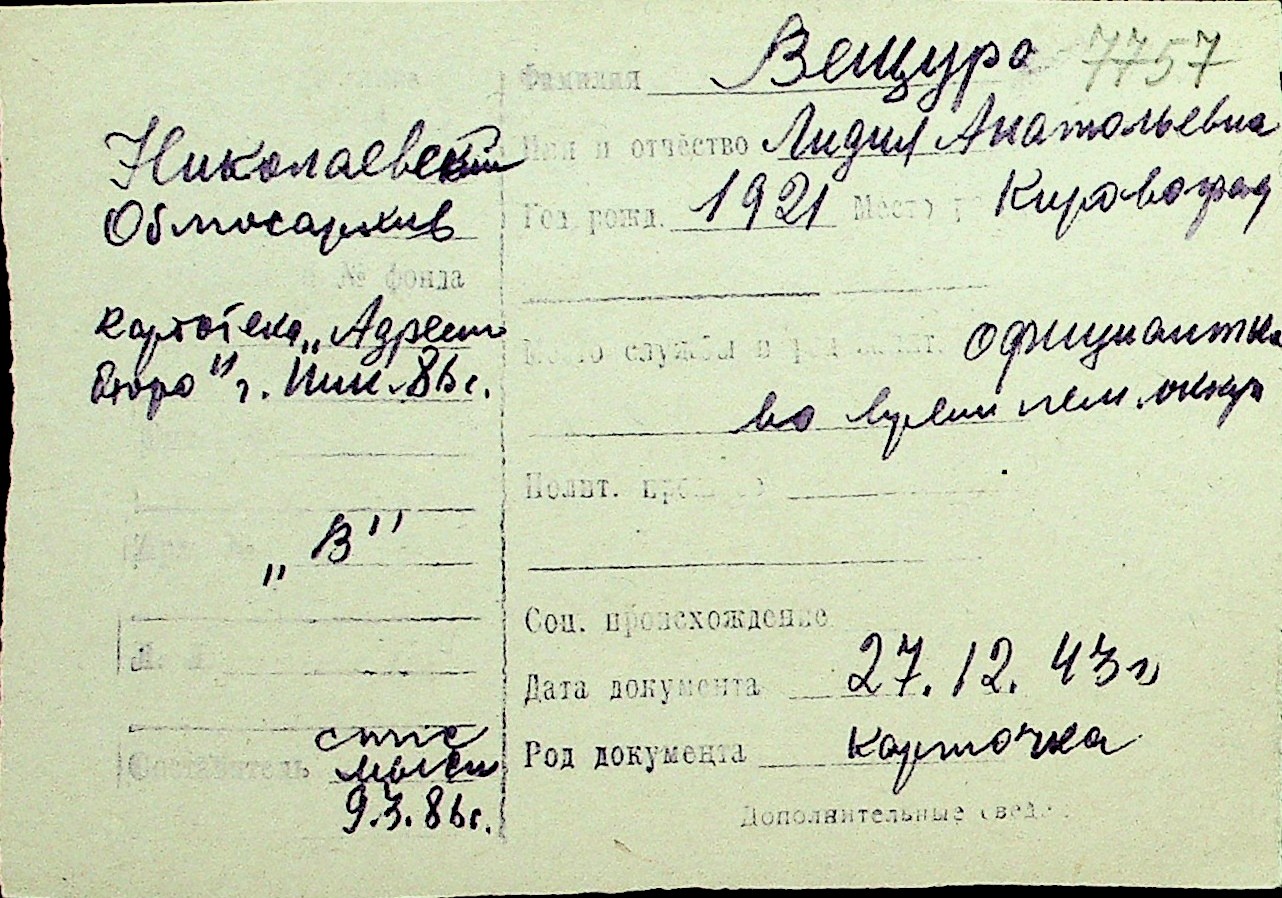 Николаевский
Облгосархив
№ фонда
картотека „Адресн
бюро" г. Ник. 86 г.
„В"
Составитель
9.3.86 г.
Фамилия Вещура 7757
Имя и отчество Лидия Анатольевна
Год рожд. 1921 Место Кировоград
Место службы официантка
во время нем. оккуп
Полит.
Соц. происхождение
Дата документа 27.12.43 г
Род документа карточка
Дополнительные свед